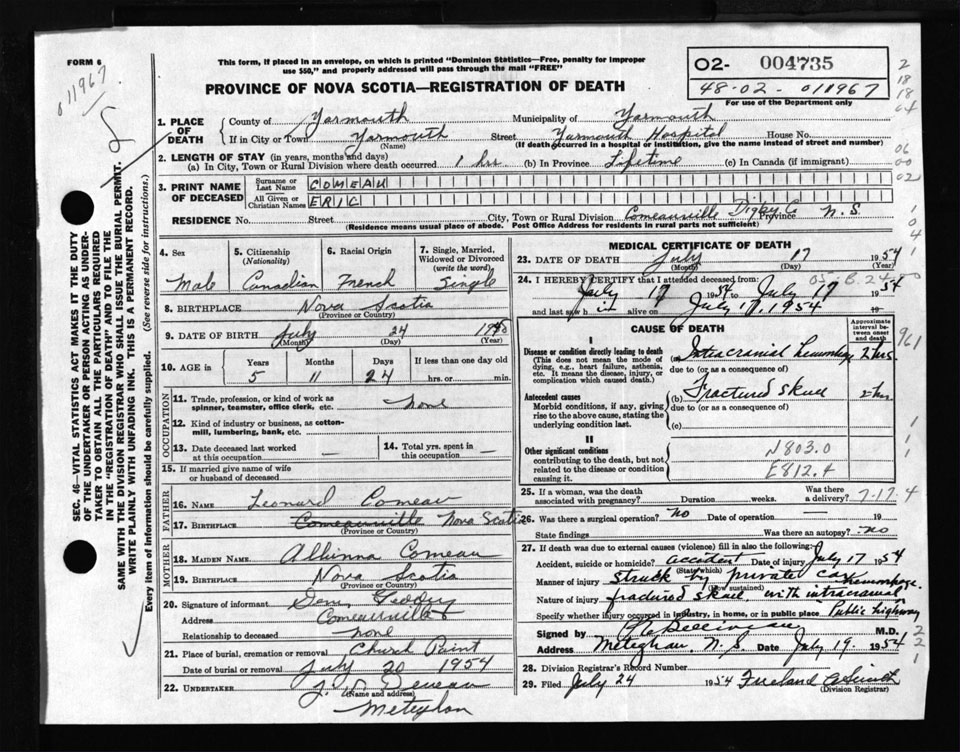 FORM 6
011967
This form, if placed in an envelope, on which is printed "Dominion Statistics—Free, penalty for improper
use $50," and properly addressed will pass through the mail "FREE"
PROVINCE OF NOVA SCOTIA—REGISTRATION OF DEATH
02- 004735
48-02-011967
For use of the Department only
1. PLACE OF DEATH
County of Yarmouth Municipality of Yarmouth
If in City or Town Yarmouth Street Yarmouth Hospital House No.
(Name) (If death occurred in a hospital or institution, give the name instead of street and number)
2. LENGTH OF STAY (in years, months and days)
(a) In City, Town or Rural Division where death occurred 1 hr (b) In Province Lifetime (c) In Canada (if immigrant)
3. PRINT NAME OF DECEASED
Surname or Last Name COMEAU
All Given or Christian Names ERIC
RESIDENCE No. Street City, Town or Rural Division Comeauville Digby Co Province N.S.
(Residence means usual place of abode. Post Office Address for residents in rural parts not sufficient)
4. Sex Male
5. Citizenship (Nationality) Canadian
6. Racial Origin French
7. Single, Married, Widowed or Divorced (write the word) Single
8. BIRTHPLACE Nova Scotia
(Province or Country)
9. DATE OF BIRTH July 24 1948
(Month) (Day) (Year)
10. AGE in Years 5 Months 11 Days 24 If less than one day old hrs. or min.
OCCUPATION
11. Trade, profession, or kind of work as spinner, teamster, office clerk, etc. none
12. Kind of industry or business, as cotton-mill, lumbering, bank, etc.
13. Date deceased last worked at this occupation —
14. Total yrs. spent in this occupation —
15. If married give name of wife or husband of deceased
FATHER
16. NAME Leonard Comeau
17. BIRTHPLACE Comeauville Nova Scotia
(Province or Country)
MOTHER
18. MAIDEN NAME Comeau
19. BIRTHPLACE Nova Scotia
(Province or Country)
20. Signature of informant
Address Comeauville
Relationship to deceased none
21. Place of burial, cremation or removal Church Point
Date of burial or removal July 20 1954
22. UNDERTAKER
(Name and address)
Meteghan
MEDICAL CERTIFICATE OF DEATH
23. DATE OF DEATH July 17 1954
(Month) (Day) (Year)
24. I HEREBY CERTIFY that I attended deceased from
July 17 1954 to July 17 1954
and last saw h im alive on July 17, 1954 19
CAUSE OF DEATH
Approximate interval between onset and death
I
Disease or condition directly leading to death
(This does not mean the mode of dying, e.g., heart failure, asthenia, etc. It means the disease, injury, or complication which caused death.)
(a) Intracranial hemorrhage 2 hrs
due to (or as a consequence of)
Antecedent causes
Morbid conditions, if any, giving rise to the above cause, stating the underlying condition last.
(b) Fractured skull 2 hrs
due to (or as a consequence of)
(c)
II
Other significant conditions
contributing to the death, but not related to the disease or condition causing it.
N803.0
E812.4
25. If a woman, was the death associated with pregnancy? Duration weeks. Was there a delivery? 7-17-4
26. Was there a surgical operation? no Date of operation — 19
State findings Was there an autopsy? no
27. If death was due to external causes (violence) fill in also the following:
Accident, suicide or homicide? accident Date of injury July 17 1954
(State which)
Manner of injury struck by private car
(How sustained)
Nature of injury fractured skull with intracranial hemorrhage.
Specify whether injury occurred in industry, in home, or in public place Public highway
Signed by M.D.
Address Meteghan, N.S. Date July 19 1954
28. Division Registrar's Record Number
29. Filed July 24 1954
(Division Registrar)
SEC. 46—VITAL STATISTICS ACT MAKES IT THE DUTY
OF THE UNDERTAKER OR PERSON ACTING AS UNDER-
TAKER TO OBTAIN ALL THE PARTICULARS REQUIRED
IN THE "REGISTRATION OF DEATH" AND TO FILE THE
SAME WITH THE DIVISION REGISTRAR WHO SHALL ISSUE THE BURIAL PERMIT.
WRITE PLAINLY WITH UNFADING INK. THIS IS A PERMANENT RECORD.
Every item of information should be carefully supplied. (See reverse side for instructions.)